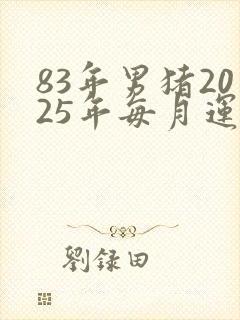 83年男猪20
25年每月運
劉録田